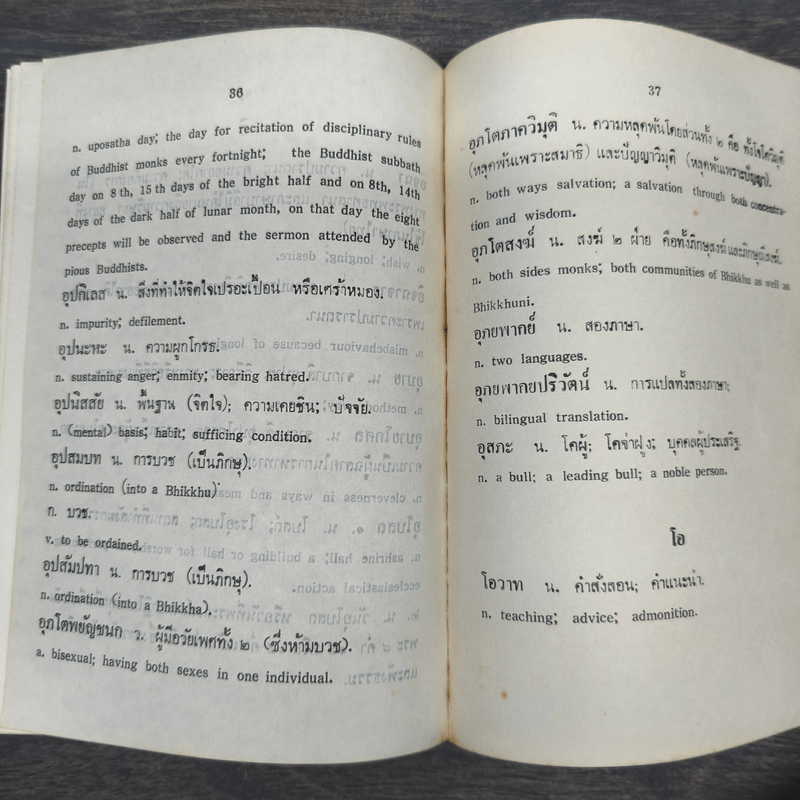 36
n. uposatha day; the day for recitation of disciplinary rules
of Buddhist monks every fortnight; the Buddhist subbath
day on 8th, 15th days of the bright half and on 8th, 14th
days of the dark half of lunar month, on that day the eight
precepts will be observed and the sermon attended by the
pious Buddhists.
อุปกิเลส น. สิ่งที่ทำให้จิตใจเปรอะเปื้อน หรือเศร้าหมอง.
n. impurity; defilement.
อุปนะหะ น. ความผูกโกรธ.
n. sustaining anger; enmity; bearing hatred.
อุปนิสสัย น. พื้นฐาน (จิตใจ); ความเคยชิน; ปัจจัย.
n. (mental) basis; habit; sufficing condition.
อุปสมบท น. การบวช (เป็นภิกษุ).
n. ordination (into a Bhikkhu)
ก. บวช.
v. to be ordained.
อุปสัมปทา น. การบวช (เป็นภิกษุ).
n. ordination (into a Bhikkha).
อุภโตพยัญชนก ว. ผู้มีอวัยเพศทั้ง ๒ (ซึ่งห้ามบวช).
a. bisexual; having both sexes in one individual.
37
อุภโตภาควิมุติ น. ความหลุดพ้นโดยส่วนทั้ง ๒ คือ ทั้งเจโตวิมุติ
(หลุดพ้นเพราะสมาธิ) และปัญญาวิมุติ (หลุดพ้นเพราะปัญญา).
n. both ways salvation; a salvation through both concentra-
tion and wisdom.
อุภโตสงฆ์ น. สงฆ์ ๒ ฝ่าย คือทั้งภิกษุสงฆ์ และภิกษุณีสงฆ์.
n. both sides monks; both communities of Bhikkhu as well as
Bhikkhuni.
อุภยพากย์ น. สองภาษา.
n. two languages.
อุภยพากยปริวัตน์ น. การแปลทั้งสองภาษา;
n. bilingual translation.
อุสภะ น. โคผู้; โคจ่าฝูง; บุคคลผู้ประเสริฐ
n. a bull; a leading bull; a noble person.
โอ
โอวาท น. คำสั่งสอน; คำแนะนำ.
n. teaching; advice; admonition.